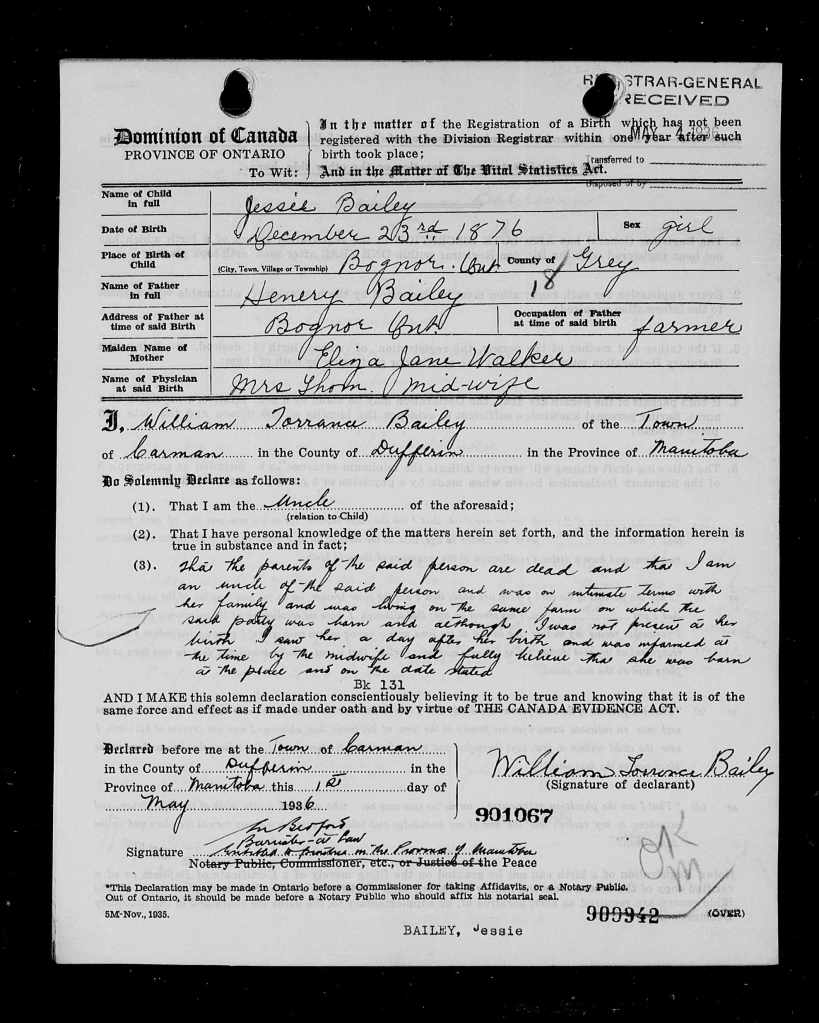 REGISTRAR-GENERAL
RECEIVED
MAY 4 1936
Transferred to
Disposed of by
Dominion of Canada
PROVINCE OF ONTARIO
To Wit:
In the matter of the Registration of a Birth which has not been
registered with the Division Registrar within one year after such
birth took place;
And in the Matter of The Vital Statistics Act.
Name of Child in full Jessie Bailey
Date of Birth December 23rd 1876 Sex girl
Place of Birth of Child (City, Town, Village or Township) Bognor. Ont County of Grey
18
Name of Father in full Henery Bailey
Address of Father at time of said Birth Bognor Ont. Occupation of Father at time of said birth farmer
Maiden Name of Mother Eliza Jane Walker
Name of Physician at said Birth Mrs Thom. Mid-wife
I, William Torrance Bailey of the Town
of Carman in the County of Dufferin in the Province of Manitoba
Do Solemnly Declare as follows:
(1). That I am the Uncle of the aforesaid;
(relation to Child)
(2). That I have personal knowledge of the matters herein set forth, and the information herein is
true in substance and in fact;
(3). that the parents of the said person are dead and that I am
an uncle of the said person and was on intimate terms with
her family and was living on the same farm on which the
said party was born and although I was not present at her
birth I saw her a day after her birth and was informed at
the time by the midwife and fully believe that she was born
at the place and on the date stated
Bk 131
AND I MAKE this solemn declaration conscientiously believing it to be true and knowing that it is of the
same force and effect as if made under oath and by virtue of THE CANADA EVIDENCE ACT.
Declared before me at the Town of Carman
in the County of Dufferin in the
Province of Manitoba this 1st day of
May 1936
William Torrance Bailey
(Signature of declarant)
901067
Bedford
Barrister-at-Law
Signature Entitled to practise in the Province of Manitoba
Notary Public, Commissioner, etc., or Justice of the Peace
OK
M
*This Declaration may be made in Ontario before a Commissioner for taking Affidavits, or a Notary Public.
Out of Ontario, it should be made before a Notary Public who should affix his notarial seal.
5M-Nov., 1935.
900942
(OVER)
BAILEY, Jessie